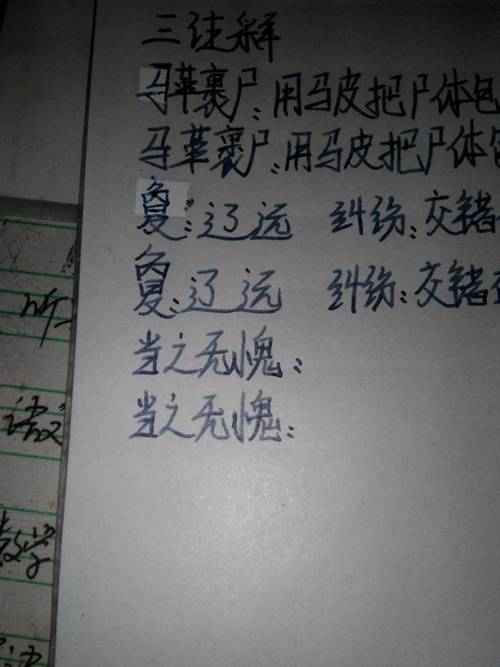 三注释
马革裹尸:用马皮把尸体包
马革裹尸:用马皮把尸体包
敻:辽远 纠纷:交错
敻:辽远 纠纷:交错
当之无愧:
当之无愧:
听
数学